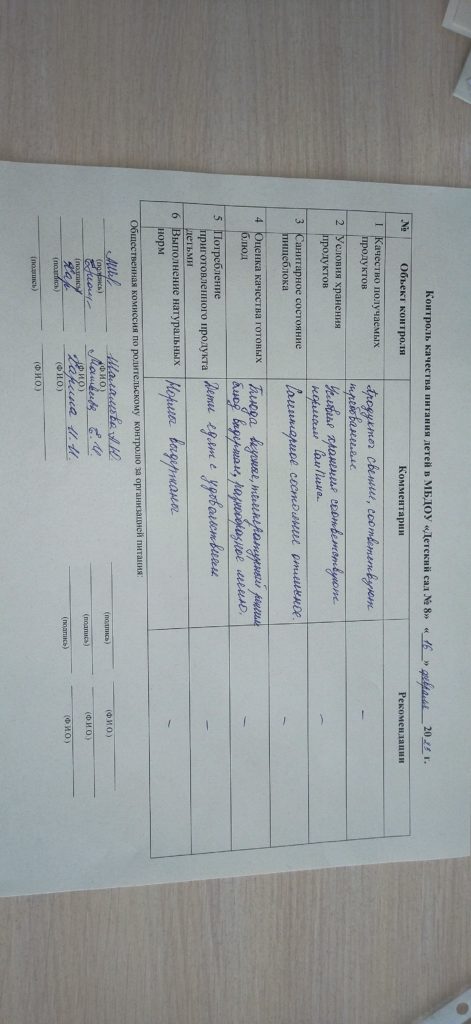 Контроль качества питания детей в МБДОУ «Детский сад № 8» « 16 » февраля 2023 г.
№ Объект контроля Комментарии Рекомендации
1 Качество получаемых продуктов Продукты свежие, соответствуют требованиям –
2 Условия хранения продуктов Условия хранения соответствуют нормам СанПина –
3 Санитарное состояние пищеблока Санитарное состояние отличное. –
4 Оценка качества готовых блюд Блюда вкусные, температурный режим блюд выдержан, разнообразное меню. –
5 Потребление приготовленного продукта детьми Дети едят с удовольствием –
6 Выполнение натуральных норм Нормы выдержаны –
Общественная комиссия по родительскому контролю за организацией питания:
(подпись) (Ф.И.О.) (подпись) (Ф.И.О.)
(подпись) (Ф.И.О.) (подпись) (Ф.И.О.)
Ларина И.И.
(подпись) (Ф.И.О.) (подпись) (Ф.И.О.)
(подпись) (Ф.И.О.)